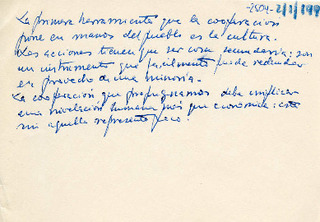 -2504- 2/1/199
La primera herramienta que la cooperacion
pone en manos del pueblo es la cultura.
Las acciones tienen que ser cosa secundaria: son
un instrumento que facilmente puede redundar
en provecho de una minoria.
La cooperación que propugnamos debe implicar
una nivelación humana más que economica: esta
sin aquella representa poco.